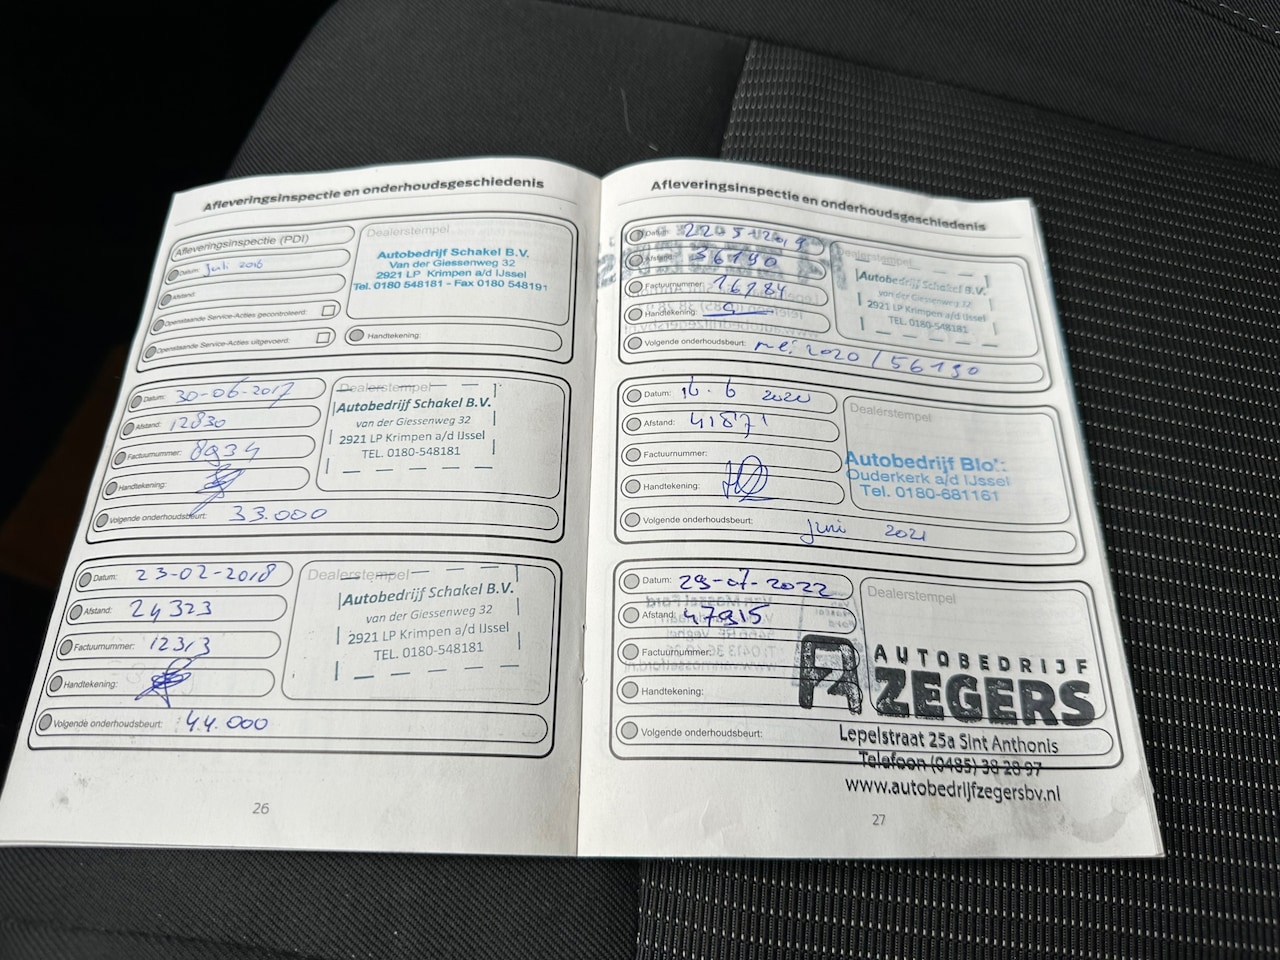 Afleveringsinspectie en onderhoudsgeschiedenis
Afleveringsinspectie (PDI)
Datum: Juli 2016
Afstand:
Openstaande Service-Acties gecontroleerd:
Openstaande Service-Acties uitgevoerd:
Dealerstempel
Autobedrijf Schakel B.V.
Van der Giessenweg 32
2921 LP Krimpen a/d IJssel
Tel. 0180 548181 - Fax 0180 548191
Handtekening:
Datum: 30-06-2017
Afstand: 12830
Factuurnummer: 8934
Handtekening:
Volgende onderhoudsbeurt: 33.000
Dealerstempel
Autobedrijf Schakel B.V.
van der Giessenweg 32
2921 LP Krimpen a/d IJssel
TEL. 0180-548181
Datum: 23-02-2018
Afstand: 24323
Factuurnummer: 12313
Handtekening:
Volgende onderhoudsbeurt: 44.000
Dealerstempel
Autobedrijf Schakel B.V.
van der Giessenweg 32
2921 LP Krimpen a/d IJssel
TEL. 0180-548181
26
Afleveringsinspectie en onderhoudsgeschiedenis
Datum: 22 5 2019
Afstand: 36190
Factuurnummer: 16784
Handtekening:
Volgende onderhoudsbeurt: mei 2020 / 56190
Dealerstempel
Autobedrijf Schakel B.V.
van der Giessenweg 32
2921 LP Krimpen a/d IJssel
TEL. 0180-548181
Datum: 16-6 2020
Afstand: 41871
Factuurnummer:
Handtekening:
Volgende onderhoudsbeurt: juni 2021
Dealerstempel
Autobedrijf Blo
Ouderkerk a/d IJssel
Tel. 0180-681161
Datum: 29-07-2022
Afstand: 47915
Factuurnummer:
Handtekening:
Volgende onderhoudsbeurt:
Dealerstempel
AUTOBEDRIJF
ZEGERS
Lepelstraat 25a Sint Anthonis
Telefoon (0485) 38 28 97
www.autobedrijfzegersbv.nl
27